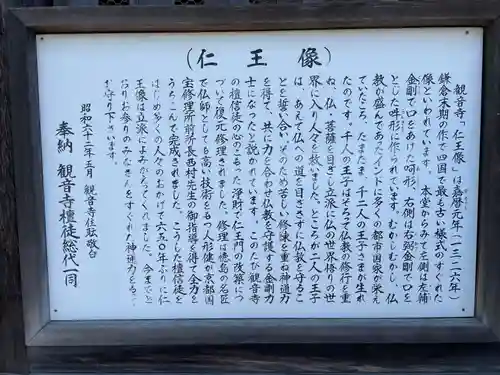 (仁王像)
観音寺「仁王像」は嘉暦元年(一三二六年)
鎌倉末期の作で四国で最も古い様式のすぐれた
像といわれています。本堂からみて左側は左輔
金剛で口をあけた呵形、右側は右弼金剛で口を
とじた吽形に作られています。むかしむかし、仏
教が盛んであったインドに多くの都市国家が栄え
ていたころ、たまたま、千二人の王子さまが生れ
たのです。千人の王子はそろって仏教の修行を重
ね、仏、菩薩を目ざし立派に仏の世界悟りの世
界に入り人々を救いました。ところが二人の王子
は、あえて仏への道を目ざさずに仏教を守るこ
とを誓い合い、そのため苦しい修練を重ね神通力
を得て、共に力を合わせ仏教を守護する金剛力
士になったと説かれています。このたび観音寺
の檀信徒の心のこもった浄財で仁王門の改築につ
づいて復元修理されました。修理は徳島の名匠
で仏師としても高い技術をもつ人形健が京都国
宝修理所前所長西村先生の御指導を得て全力を
うちこんで完成されました。こうした檀信徒を
はじめ多くの人々のおかげで六五〇年ぶりに仁
王像は立派によみがえってくれました。今までと
お参りのみなさんをすぐれた神通力を
お守り下さいます。
昭和六十二年五月 観音寺住職敬白
奉納 観音寺檀徒総代一同